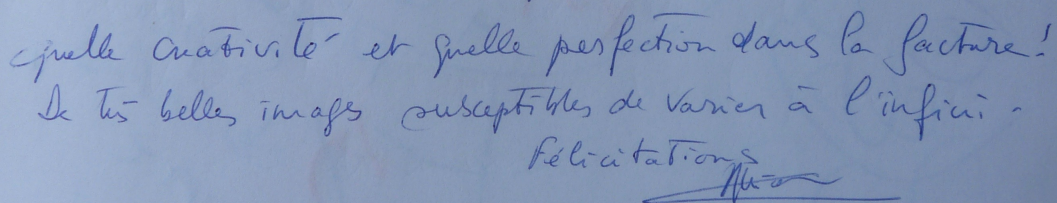 quelle créativité et quelle perfection dans la facture!
De très belles images susceptibles de varier à l'infini.
Félicitations